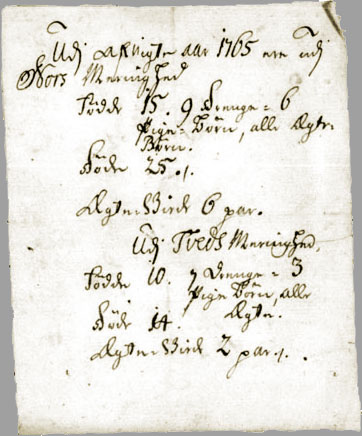 Udj afvigte aar 1765 ere udj
Thors Meenighed
Fødde 15. 9 Drenge= 6
Pige= Børn, alle Ægte
Børn.
Døde 25 ./.
Ægte=Viede 6 par.
Udj Tveds Meenighed.
Fødde 10. 7 Drenge= 3
Pige Børn, alle
Døde 14. Ægte.
Ægte=Viede 2 par ./.